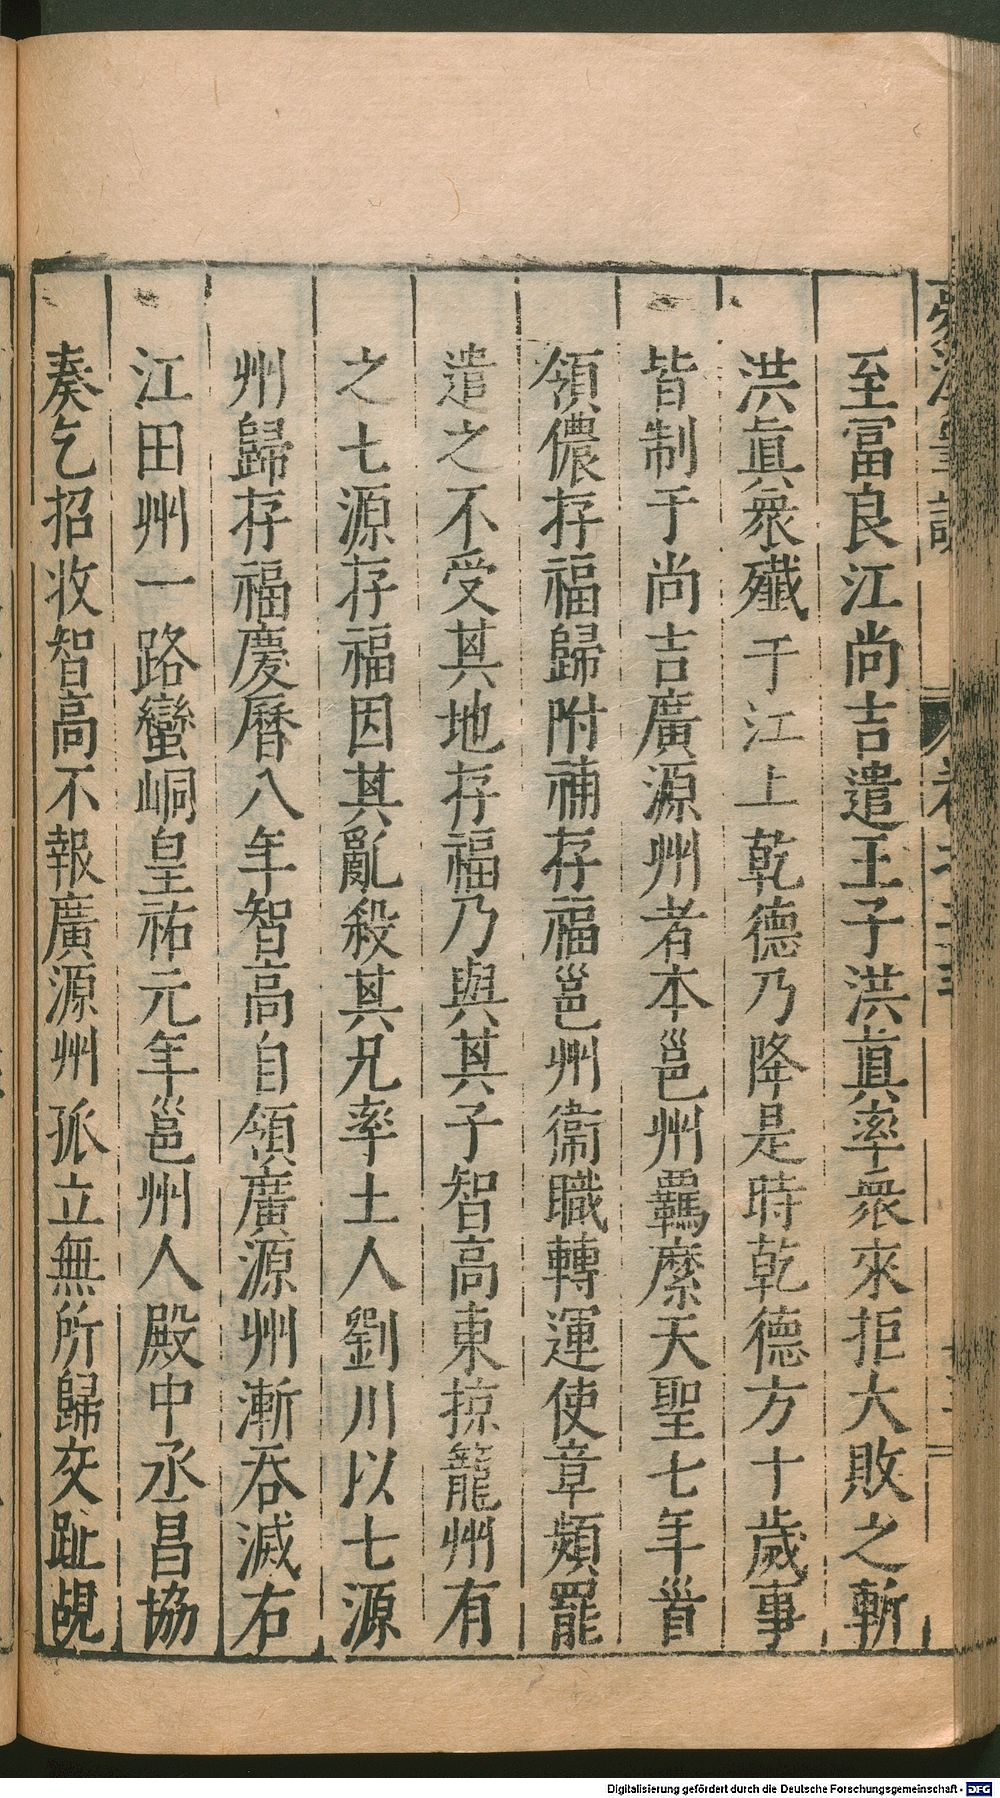 至富良江尚吉遣王子洪眞率衆來拒大敗之斬
洪眞衆殲于江上乾德乃降是時乾德方十歲事
皆制于尚吉廣源州者本邕州羈縻天聖七年首
領儂存福歸附補存福邕州衞職轉運使章頻罷
遣之不受其地存福乃與其子智高東掠籠州有
之七源存福因其亂殺其兄率土人劉川以七源
州歸存福慶曆八年智高自領廣源州漸吞滅右
江田州一路蠻峒皇祐元年邕州人殿中丞昌協
奏乞招收智高不報廣源州孤立無所歸交趾覘
Digitalisierung gefördert durch die Deutsche Forschungsgemeinschaft - DFG